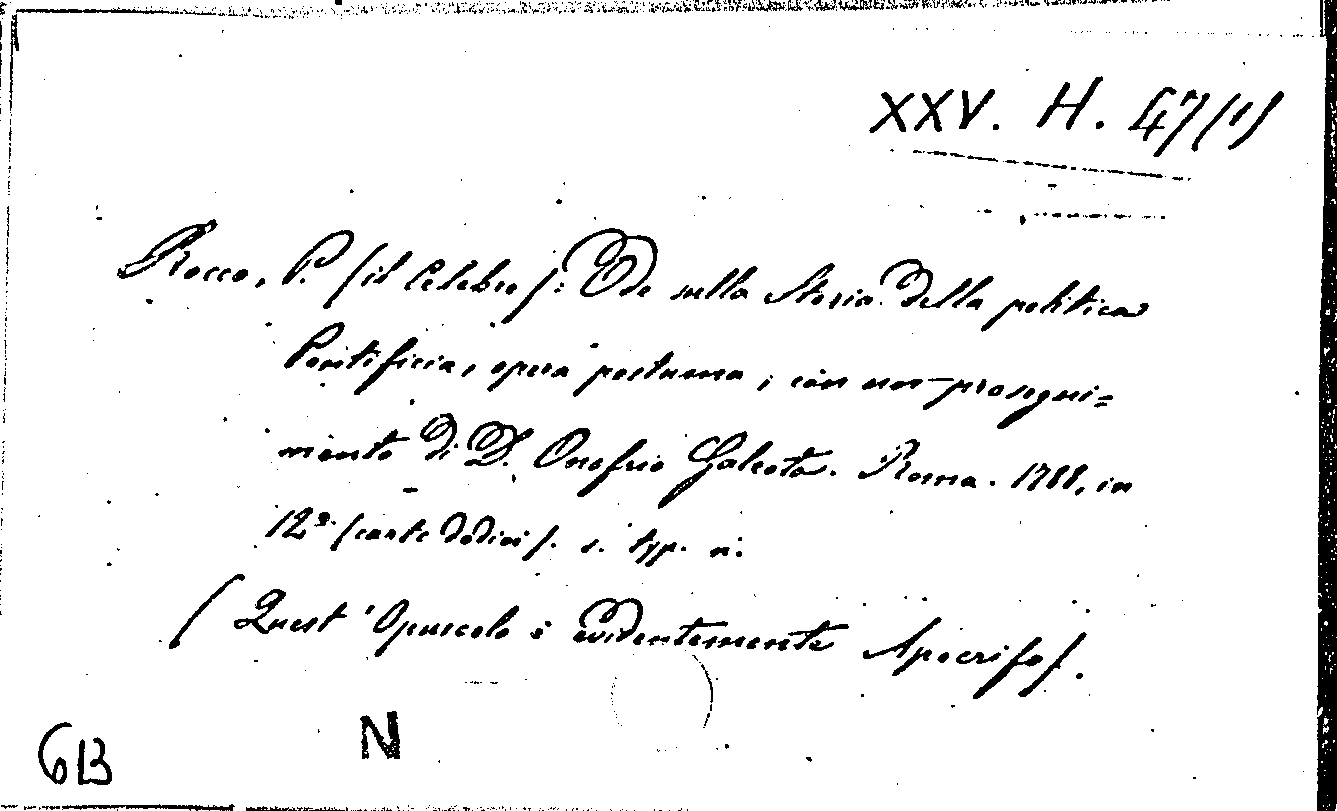 XXV. H. 47(1)
Rocco, P. (il Celebre): Ode sulla Storia della politica
Pontificia, opera postuma; con un prosegui=
mento di D. Onofrio Galeota. Roma. 1788, in
12º (carte dodici). s. typ. n.
(Quest'Opuscolo è evidentemente Apocrifo).
613 N